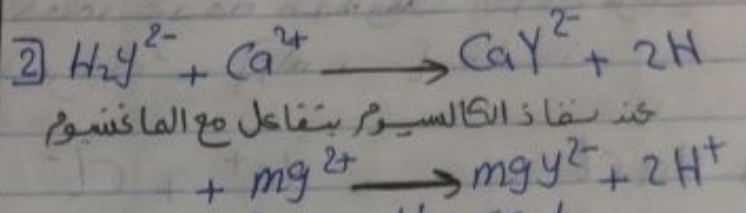 2 H₂y²⁻ + Ca²⁺ ⟶ CaY²⁻ + 2H
عند نفاذ الكالسيوم يتفاعل مع الماغنسيوم
+ mg²⁺ ⟶ mgy²⁻ + 2H⁺